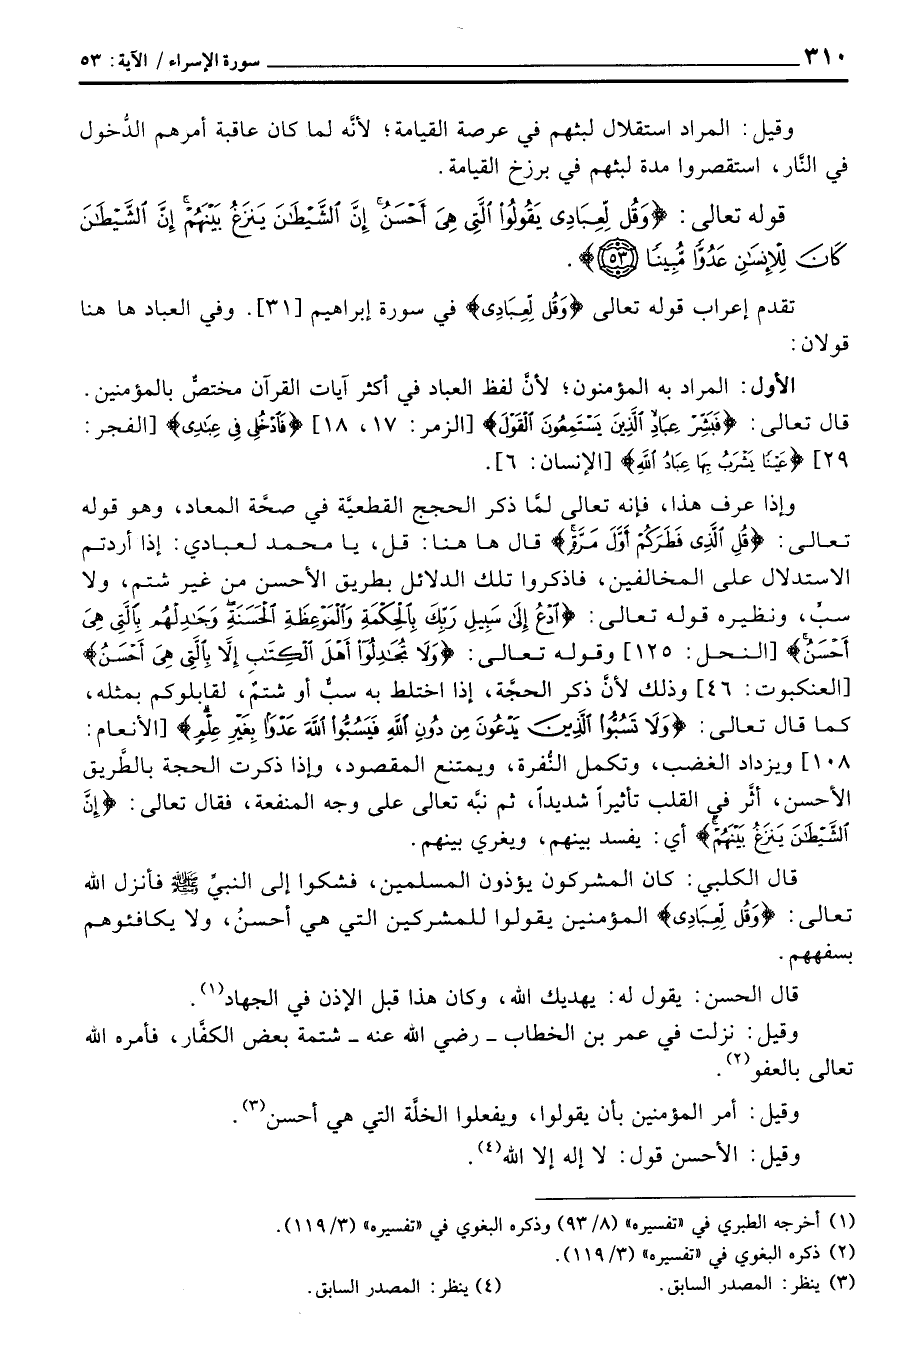 ٣١٠ سورة الإسراء / الآية: ٥٣
وقيل: المراد استقلال لبثهم في عرصة القيامة؛ لأنَّه لما كان عاقبة أمرهم الدُّخول
في النَّار، استقصروا مدة لبثهم في برزخ القيامة.
قوله تعالى: ﴿وَقُل لِّعِبَادِى يَقُولُوا۟ ٱلَّتِى هِىَ أَحْسَنُ ۚ إِنَّ ٱلشَّيْطَـٰنَ يَنزَغُ بَيْنَهُمْ ۚ إِنَّ ٱلشَّيْطَـٰنَ
كَانَ لِلْإِنسَـٰنِ عَدُوًّا مُّبِينًا ﴿٥٣﴾﴾.
تقدم إعراب قوله تعالى ﴿وَقُل لِّعِبَادِى﴾ في سورة إبراهيم [٣١]. وفي العباد ها هنا
قولان:
الأول: المراد به المؤمنون؛ لأنَّ لفظ العباد في أكثر آيات القرآن مختصٌّ بالمؤمنين.
قال تعالى: ﴿فَبَشِّرْ عِبَادِ ٱلَّذِينَ يَسْتَمِعُونَ ٱلْقَوْلَ﴾ [الزمر: ١٧، ١٨] ﴿فَٱدْخُلِى فِى عِبَـٰدِى﴾ [الفجر:
٢٩] ﴿عَيْنًا يَشْرَبُ بِهَا عِبَادُ ٱللَّهِ﴾ [الإنسان: ٦].
وإذا عرف هذا، فإنه تعالى لمَّا ذكر الحجج القطعيَّة في صحَّة المعاد، وهو قوله
تعالى: ﴿قُلِ ٱلَّذِى فَطَرَكُمْ أَوَّلَ مَرَّةٍ ۚ﴾ قال ها هنا: قل، يا محمد لعبادي: إذا أردتم
الاستدلال على المخالفين، فاذكروا تلك الدلائل بطريق الأحسن من غير شتم، ولا
سبٍّ، ونظيره قوله تعالى: ﴿ٱدْعُ إِلَىٰ سَبِيلِ رَبِّكَ بِٱلْحِكْمَةِ وَٱلْمَوْعِظَةِ ٱلْحَسَنَةِ ۖ وَجَـٰدِلْهُم بِٱلَّتِى هِىَ
أَحْسَنُ ۚ﴾ [النحل: ١٢٥] وقوله تعالى: ﴿وَلَا تُجَـٰدِلُوٓا۟ أَهْلَ ٱلْكِتَـٰبِ إِلَّا بِٱلَّتِى هِىَ أَحْسَنُ﴾
[العنكبوت: ٤٦] وذلك لأنَّ ذكر الحجَّة، إذا اختلط به سبٌّ أو شتمٌ، لقابلوكم بمثله،
كما قال تعالى: ﴿وَلَا تَسُبُّوا۟ ٱلَّذِينَ يَدْعُونَ مِن دُونِ ٱللَّهِ فَيَسُبُّوا۟ ٱللَّهَ عَدْوًۢا بِغَيْرِ عِلْمٍ ۗ﴾ [الأنعام:
١٠٨] ويزداد الغضب، وتكمل النُّفرة، ويمتنع المقصود، وإذا ذكرت الحجة بالطَّريق
الأحسن، أثَّر في القلب تأثيراً شديداً، ثم نبَّه تعالى على وجه المنفعة، فقال تعالى: ﴿إِنَّ
ٱلشَّيْطَـٰنَ يَنزَغُ بَيْنَهُمْ ۚ﴾ أي: يفسد بينهم، ويغري بينهم.
قال الكلبي: كان المشركون يؤذون المسلمين، فشكوا إلى النبيِّ ﷺ فأنزل الله
تعالى: ﴿وَقُل لِّعِبَادِى﴾ المؤمنين يقولوا للمشركين التي هي أحسنُ، ولا يكافئوهم
بسفههم.
قال الحسن: يقول له: يهديك الله، وكان هذا قبل الإذن في الجهاد(١).
وقيل: نزلت في عمر بن الخطاب - رضي الله عنه - شتمة بعض الكفَّار، فأمره الله
تعالى بالعفو(٢).
وقيل: أمر المؤمنين بأن يقولوا، ويفعلوا الخلَّة التي هي أحسن(٣).
وقيل: الأحسن قول: لا إله إلا الله(٤).
(١) أخرجه الطبري في «تفسيره» (٨/ ٩٣) وذكره البغوي في «تفسيره» (٣/ ١١٩).
(٢) ذكره البغوي في «تفسيره» (٣/ ١١٩).
(٣) ينظر: المصدر السابق. (٤) ينظر: المصدر السابق.